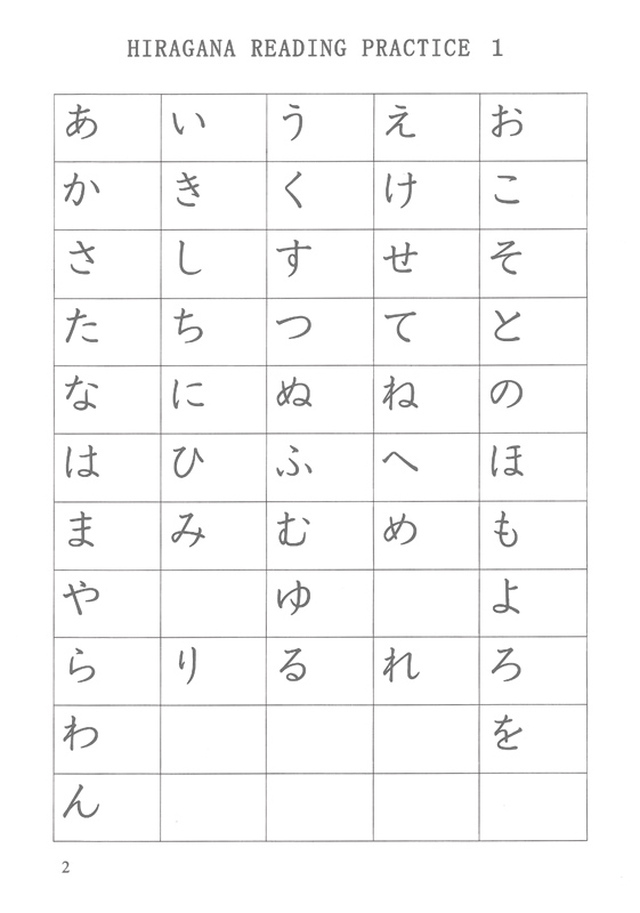 HIRAGANA READING PRACTICE 1
あ い う え お
か き く け こ
さ し す せ そ
た ち つ て と
な に ぬ ね の
は ひ ふ へ ほ
ま み む め も
や ゆ よ
ら り る れ ろ
わ を
ん
2